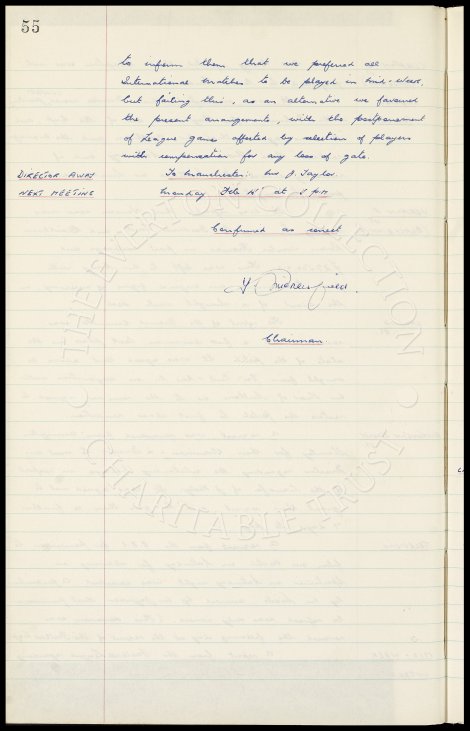 55
to inform them that we preferred all
International matches to be played in mid-week,
but failing this, as an alternative we favoured
the present arrangements, with the postponement
of League games affected by selection of players
with compensation for any loss of gate.
DIRECTOR AWAY To Manchester: Mr J. Taylor.
NEXT MEETING Monday Feb at pm
Confirmed as correct
Chairman.
THE EVERTON COLLECTION
CHARITABLE TRUST